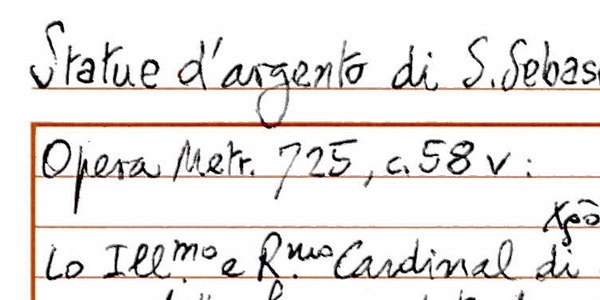 Statue d'argento di S. Sebas
Opera Metr. 725, c. 58 v:
Lo Ill.mo e R.mo Cardinal di